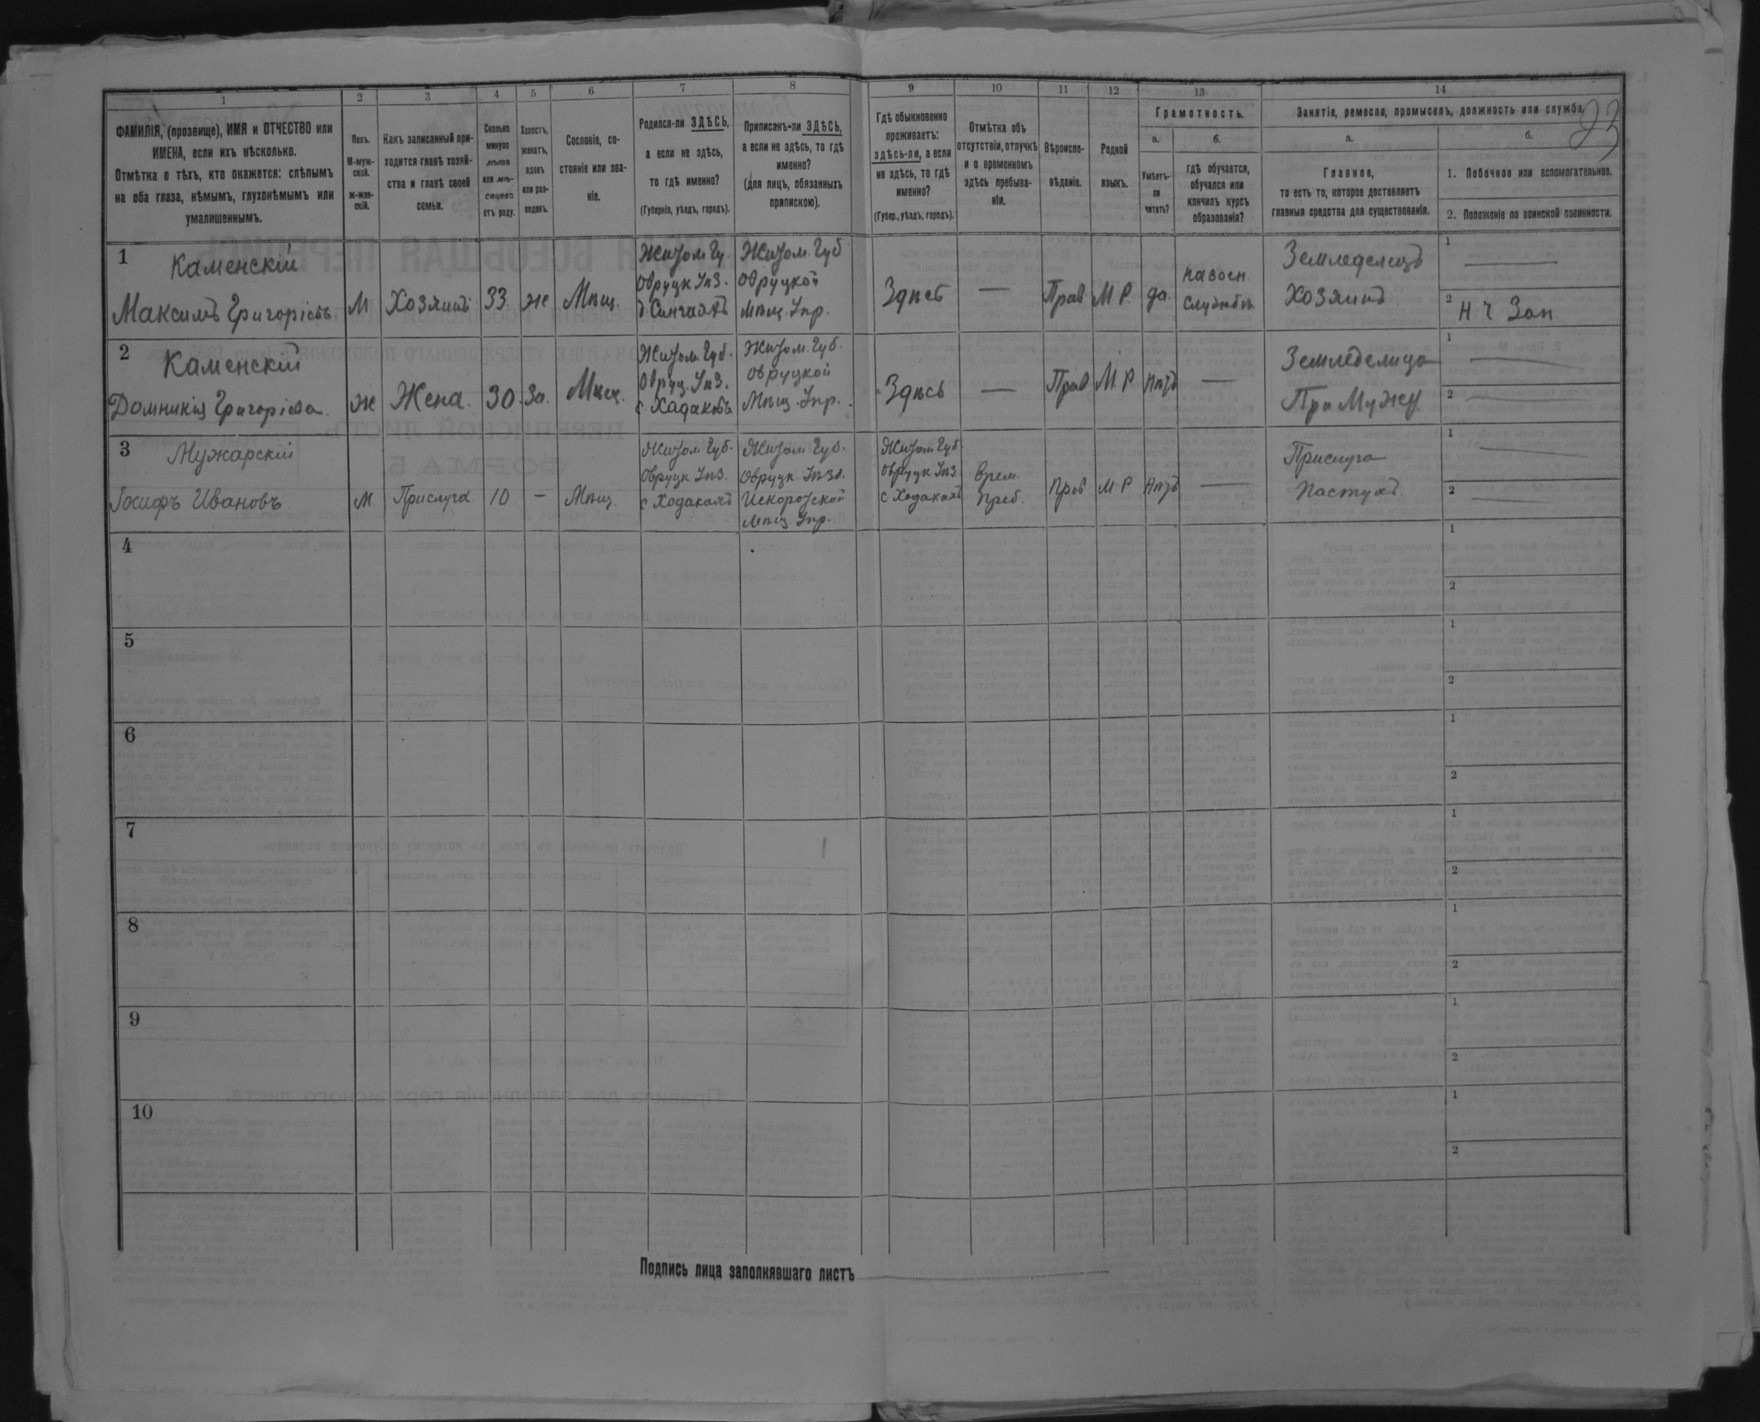 1
2
3
4
5
6
7
8
9
10
11
12
13
14
ФАМИЛІЯ, (прозвище), ИМЯ и ОТЧЕСТВО или
ИМЕНА, если ихъ нѣсколько.
Отмѣтка о тѣхъ, кто окажется: слѣпымъ
на оба глаза, нѣмымъ, глухонѣмымъ или
умалишеннымъ.
Полъ.
М-муж-
ской.
ж-жен-
скій.
Какъ записанный при-
ходится главѣ хозяй-
ства и главѣ своей
семьи.
Сколько
минуло
лѣтъ
или мѣ-
сяцевъ
отъ роду.
Холостъ,
женатъ,
вдовъ
или раз-
веденъ.
Сословіе, со-
стояніе или зва-
ніе.
Родился-ли ЗДѢСЬ,
а если не здѣсь,
то гдѣ именно?
(Губернія, уѣздъ, городъ).
Приписанъ-ли ЗДѢСЬ,
а если не здѣсь, то гдѣ
именно?
(для лицъ, обязанныхъ
припискою).
Гдѣ обыкновенно
проживаетъ:
здѣсь-ли, а если
не здѣсь, то гдѣ
именно?
(Губер., уѣздъ, городъ).
Отмѣтка объ
отсутствіи, отлучкѣ
и о временномъ
здѣсь пребыва-
ніи.
Вѣроиспо-
вѣданіе.
Родной
языкъ.
Грамотность.
а.
Умѣетъ-
ли
читать?
б.
гдѣ обучается,
обучался или
кончилъ курсъ
образованія?
Занятіе, ремесло, промыселъ, должность или служба.
23
а.
Главное,
то есть то, которое доставляетъ
главныя средства для существованія.
б.
1. Побочное или вспомогательное.
2. Положеніе по воинской повинности.
1
Каменскій
Максимъ Григорієвъ
М
Хозяинъ
33
же
Мѣщ.
Житом. Гу.
Овруцк Уѣз.
Житом. Губ
Овруцкой
Мѣщ. Упр.
Здѣсь
—
Прав
М Р
да
на воен
службѣ
Земледелецъ
Хозяинъ
1
2
Н Ч Зап
2
Каменскій
Домникія Григорієва
Ж
Жена
30
За.
Мѣщ.
Житом. Губ.
Овруц. Уѣз.
с Ходаковъ
Житом. Губ.
Овруцкой
Мѣщ. Упр.
Здѣсь
—
Прав
М Р
Нѣтъ
—
Земледелица
При Мужу
1
2
3
Мужарскій
Іосифъ Ивановъ
М
Прислуга
10
—
Мѣщ.
Житом. Губ.
Овруцк Уѣз.
с Ходакахъ
Житом. Губ.
Овруцк Уѣзд.
Искоротской
Мѣщ Упр.
Житом. Губ.
Овруцк Уѣз
с Ходакахъ
Врем.
Преб.
Прав
М Р
Нѣтъ
—
Прислуга
Пастухъ
1
2
4
1
2
5
1
2
6
1
2
7
1
2
8
1
2
9
1
2
10
1
2
Подпись лица заполнявшаго листъ